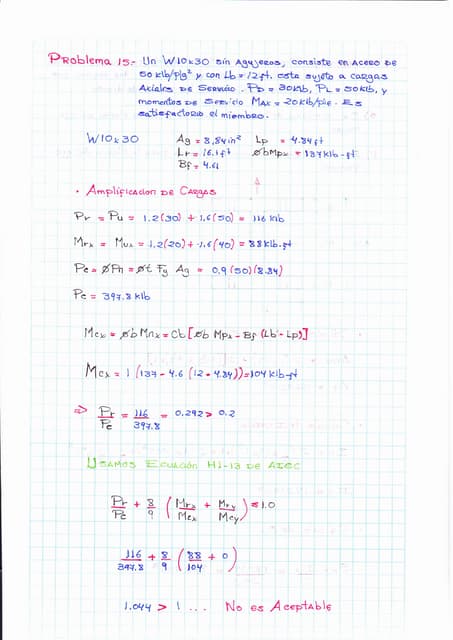 Problema 15.- Un W10x30 sin Agujeros, consiste en Acero de
50 klb/plg² y con Lb = 12ft. esta sujeto a cargas
Axiales de Servicio. PD = 30klb, PL = 50klb, y
momentos de Servicio Max = 20klb/pie. Es
satisfactorio el miembro.
W10x30 Ag = 8,84in² Lp = 4.84ft
Lr = 16.1ft ØbMpx = 137klb-ft
Bf = 4.61
• Amplificacion de Cargas
Pr = Pu = 1.2(30) + 1,6(50) = 116 klb
Mrx = Mux = 1.2(20) + 1.6(40) = 88klb.ft
Pc = ØPn = Øt Fy Ag = 0,9 (50)(8.84)
Pc = 397.8 klb
Mcx = Øb Mnx = Cb [Øb Mpx - Bf (Lb - Lp)]
Mcx = 1 (137 - 4.6 (12 - 4.84)) = 104 klb-ft
=> Pr/Pc = 116/397.8 = 0.292 > 0.2
Usamos Ecuación H1-13 de AISC
Pr/Pc + 8/9 (Mrx/Mcx + Mry/Mcy) ≤ 1.0
116/397.8 + 8/9 (88/104 + 0)
1.044 > 1 ... No es Aceptable